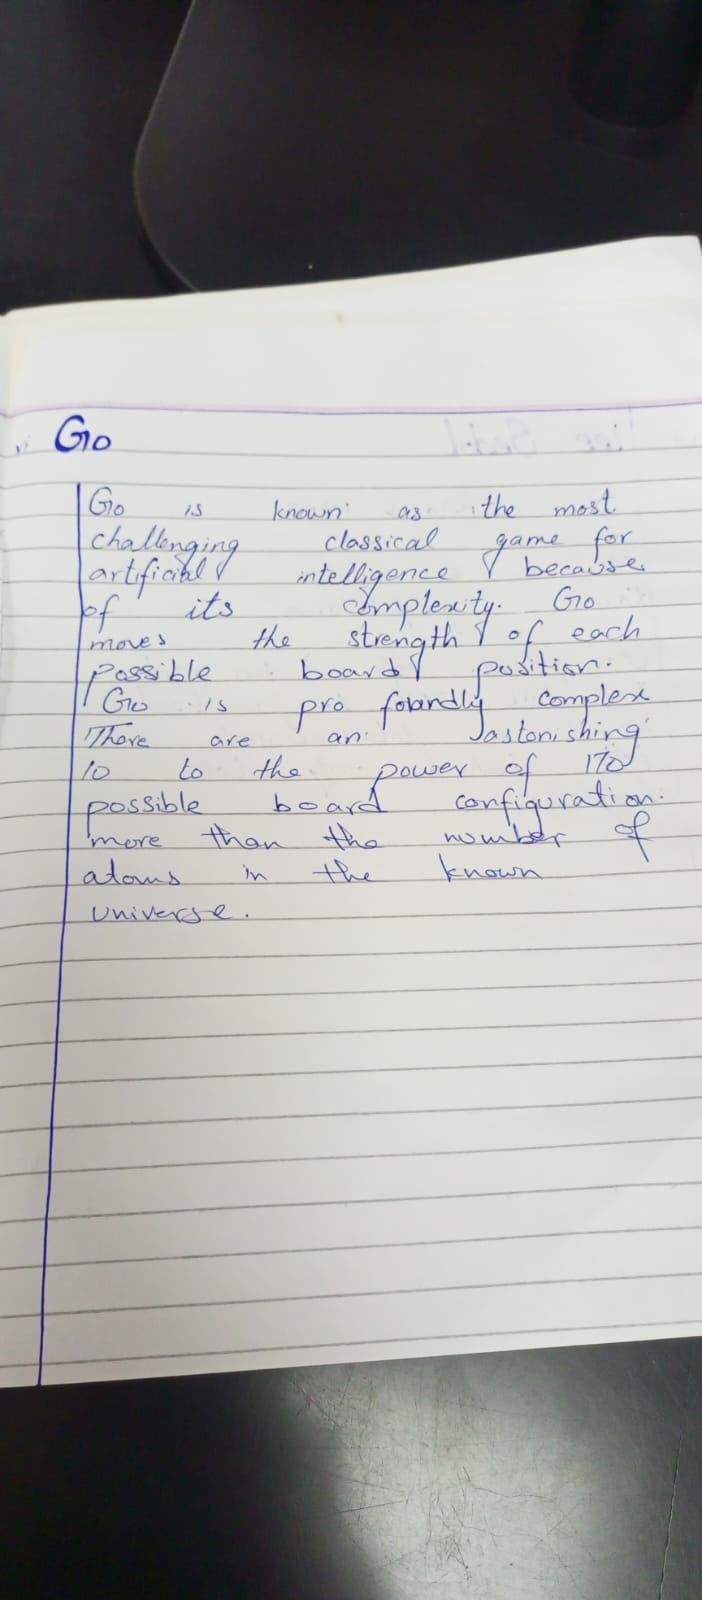 Go
Go is known as the most
challenging classical game for
artificial intelligence because
of its complexity. Go
moves the strength of each
possible board position.
Go is pro foundly complex
There are an astonishing
10 to the power of 170
possible board configuration.
more than the number of
atoms in the known
universe.